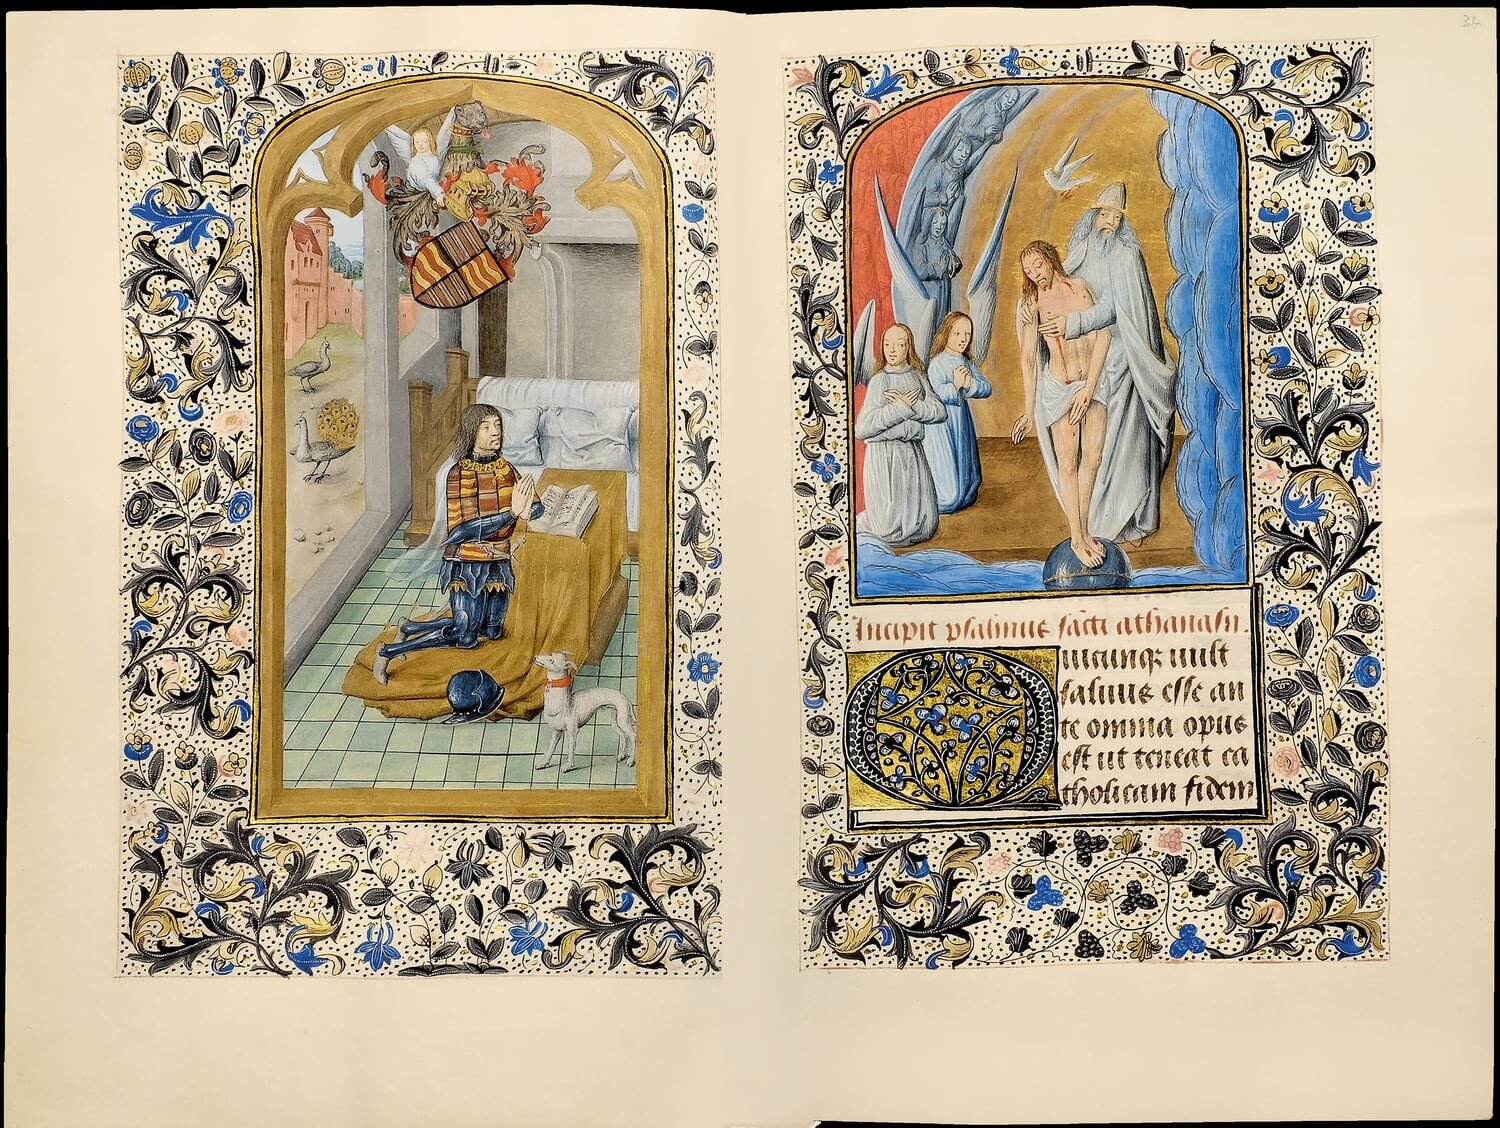 33
Incipit psalmus sācti athanasii.
Quicunq; uult
saluus esse an
te omnia opus
est ut teneat ca
tholicam fidem